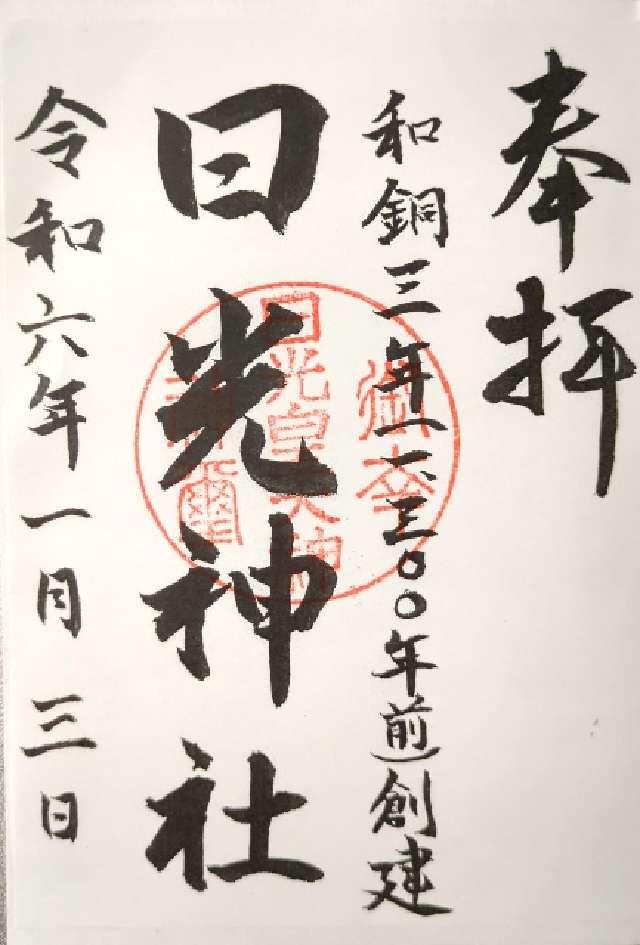 奉拝
和銅三年一、三〇〇年前創建
日光神社
日光皇大神
令和六年一月三日